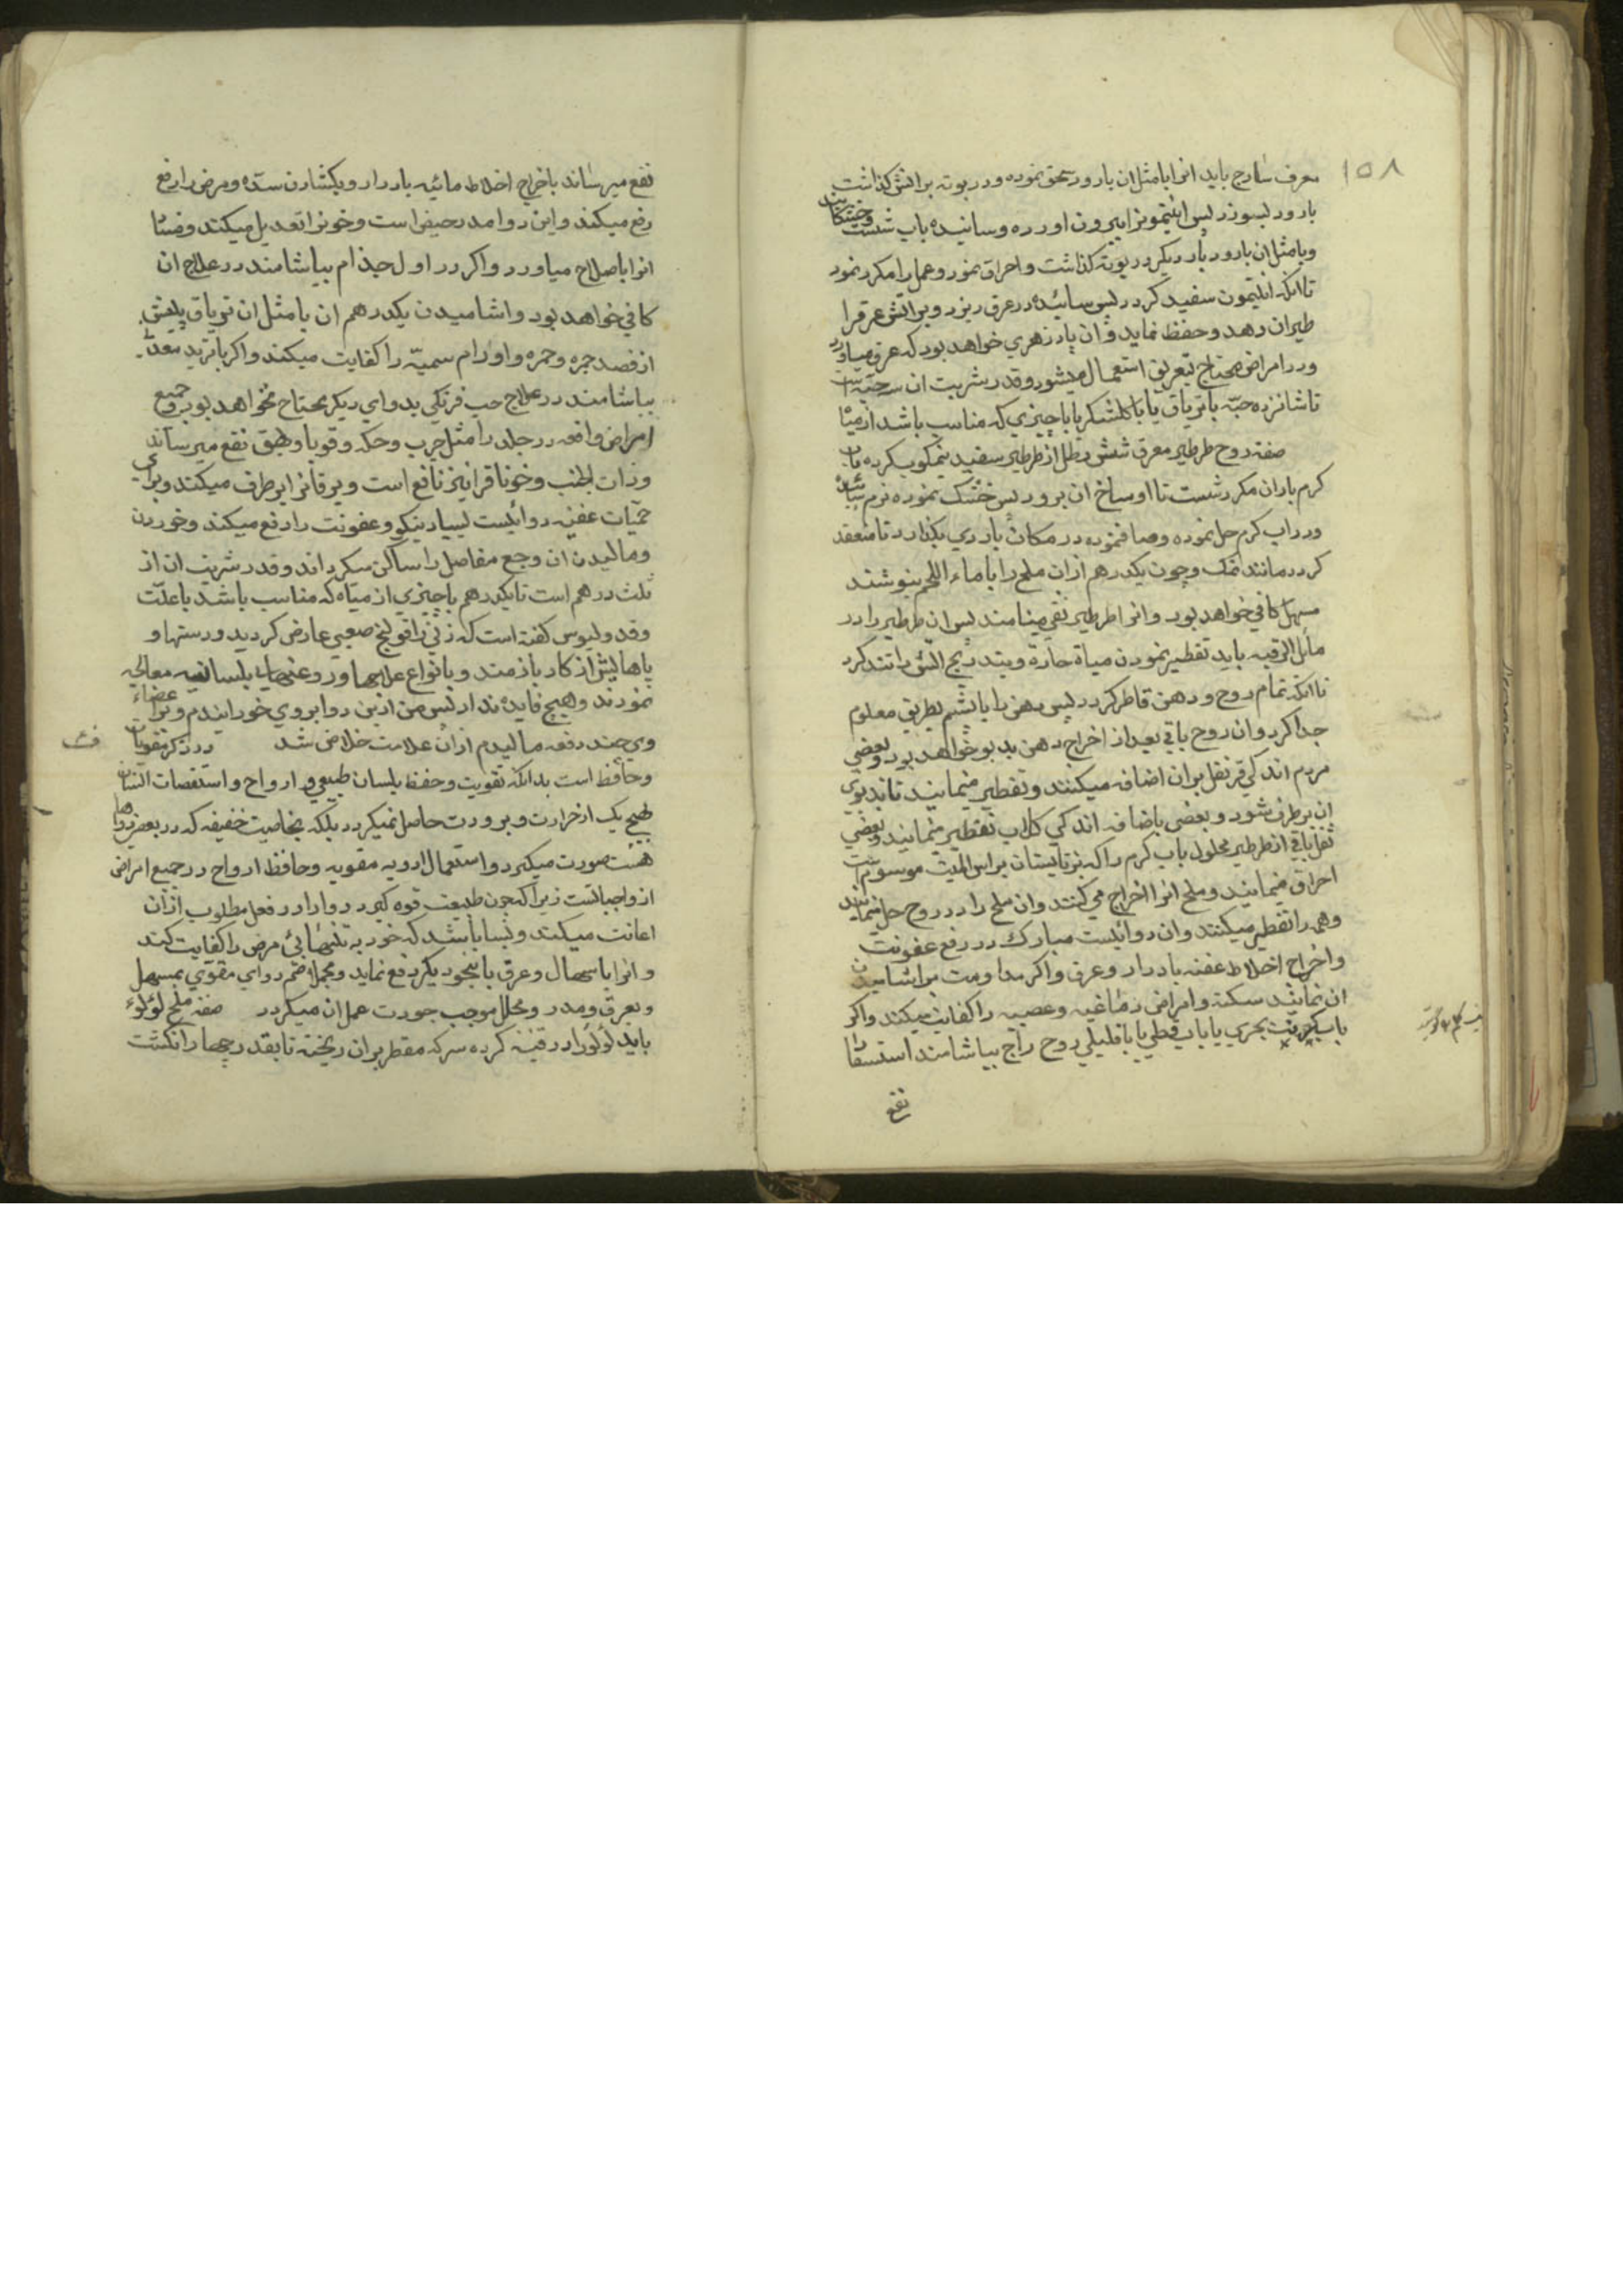 ۱۵۸
معرف سادج باید انرا بامثل ان بارود سحق نموده و در بوته بر اتش کذاشت
بارود بسوزد پس انتیمونرا بیرون اورده و سائیده باب شست و خشکانید
و بامثل ان بارود بار دیکر در بوته کذاشت و احراق نمود و عمل را مکرر نمود
تا انکه انتیمون سفید کردد پس سائیده در عرق ریزد و بر اتش عرقرا
طیران دهد و حفظ نماید و ان پادزهری خواهد بود که عرق میاورد
و در امراض محتاج بتعریق استعمال میشود و قدر شربت ان سه حبّه است
تا شانزده حبّه با تریاق یا با کلشکر یا با چیزی که مناسب باشد از میاه
صفة روح طرطیر معرق شش رطل از طرطیر سفید نیمکوب کرده باب
کرم باران مکرر شست تا اوساخ ان برود پس خشک نموده نرم بساید
و در اب کرم حل نموده و صاف نموده در مکان باردی بکذارد تا منعقد
کردد مانند نمک و چون یکدرهم از ان ملح را با ماء اللحم بنوشند
مسهل کافی خواهد بود و انرا طرطیر نقی مینامند پس ان طرطیر را در
مائل الرقبه باید تقطیر نمودن میاة حارة و بتدریج اتش را تند کرد
تا انکه تمام روح و دهن قاطر کردد پس دهن را با پشم بطریق معلوم
جدا کرد و ان روح باقی بعد از اخراج دهن بدبو خواهد بود و بعضی
مردم اندکی قرنفل بر ان اضافه میکنند و تقطیر مینمایند تا بدبوی
ان برطرف شود و بعضی باضافه اندکی کلاب تقطیر مینمایند و بعضی
ثفل باقی از طرطیر محلول باب کرم را که نزد ایشان براس المیت موسوم است
احراق مینمایند و ملح انرا اخراج می کنند و ان ملح را در روح حل مینمایند
و همه را تقطیر میکنند و ان دوائیست مبارک در رفع عفونت
و اخراج اخلاط عفنه بادرار و عرق و اکر مداومت بر اشامیدن
ان نمایند سکته و امراض دماغیه و عصبیه را کفایت میکند و اکر
باب کبریت بحری یا باب قطی یا با قلیلی روح زاج بیاشامند استسقا را
نفع
نفع میرساند باخراج اخلاط مائیه بادرار و بکشادن سدّه و مرض را رفع
رفع میکند و این دوا مدر حیض است و خونرا تعدیل میکند و فساد
انرا باصلاح میاورد و اکر در اول جذام بیاشامند در علاج ان
کافی خواهد بود و اشامیدن یکدرهم ان با مثل ان تریاق پیش
از فصد جمره و حمره و اورام سمیّه را کفایت میکند و اکر با تربد معدنی
بیاشامند در علاج حب فرنکی بدوای دیکر محتاج نخواهد بود و جمیع
امراض واقعه در جلد را مثل جرب و حکه و قوبا و بهق نفع میرساند
و ذات الجنب و خوناق را نیز نافع است و یرقانرا برطرف میکند و برای
حمّیات عفنیه دوائیست بسیار نیکو و عفونت را رفع میکند و خوردن
و مالیدن ان وجع مفاصل را ساکن میکرداند و قدر شربت ان از
ثلث درهم است تا یکدرهم با چیزی از میاه که مناسب باشد با علّت
و قدولیوس کفته است که زنی را قولنج صعبی عارض کردید و دستها و
پاهایش از کار بازمند و بانواع علاجها و روغنهای بلسانیه معالجه
نمودند و هیچ فایده نداد پس من ازین دوا بروی خورانیدم و بر اعضاء
وی چند دفعه مالیدم از ان علامت خلاص شد در ذکر مقویات
و حافظ است بدانکه تقویت و حفظ بلسان طبیعی و ارواح و استقصات انسان
بهیچ یک از حرارت و برودت حاصل نمیکردد بلکه بخاصیت خفیفه که در بعض دواها
هست صورت میکیرد و استعمال ادویه مقویه و حافظ ارواح در جمیع امراض
از واجباتست زیرا که چون طبیعت قوه کیرد دوا را در فعل مطلوب از ان
اعانت میکند و بسا باشد که خود به تنهائی مرض را کفایت کند
و انرا باسهال و عرق یا بنحو دیکر دفع نماید و مجملا ضم دوای مقوی بمسهل
و بعرق و مدر و محلل موجب جودت عمل ان میکردد صفة ملح لؤلؤ
باید لؤلؤ را در قنینه کرده سرکه مقطر بر ان ریخته تا بقدر چهار انکشت